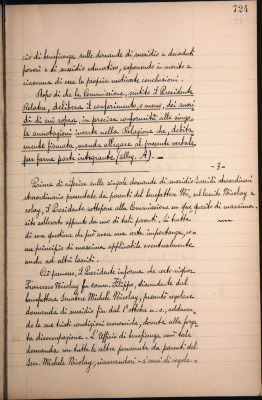 724
cio di beneficenza sulle domande di sussidio a decaduti
poveri e di sussidio educativo, esponendo in merito a
ciascuna di esse le proprie motivate conclusioni.
Dopo di che la Commissione, sentito il Presidente
Relatore, delibera il conferimento, o meno, dei sussi-
di di cui sopra, in precisa conformità alle singo-
le annotazioni inserite nella Relazione che, debita-
mente firmata, manda allegare al presente verbale
per farne parte integrante (alleg. A).
-3-
Prima di riferire sulle singole domande di sussidio
straordinario presentate da parenti del benefattore
Nicolay, il Presidente sottopone alla Commissione un quesito di massima.
Si tratta
di una questione che può avere una certa importanza, co-
me principio di massima applicabile eventualmente
anche ad altri lasciti.
Ciò premesso, il Presidente informa che certo signor
Francesco Nicolay fu Filippo, discendente dal
benefattore Senatore Michele Nicolay, presentò regolare
domanda di sussidio fin dal 1° ottobre a. s., adducen-
do le sue tristi condizioni economiche, dovute alla forza-
ta disoccupazione. L'Ufficio di beneficenza unì tale
domanda con tutte le altre pervenute da parenti del
Sen. Michele Nicolay, riservandosi - s'envi di regola -